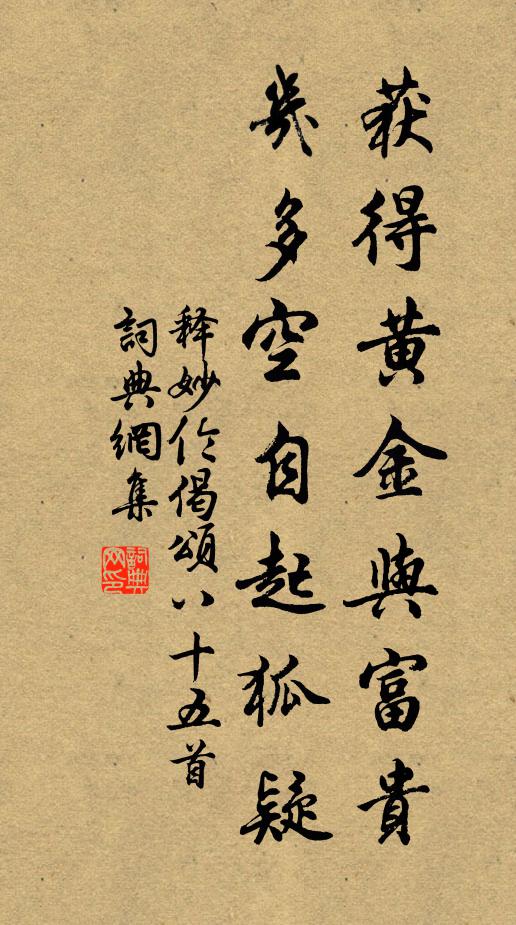 获得黄金與富貴
幾多空自起狐疑
释妙伦偈頌八十五首
詞典網集
詞典网印